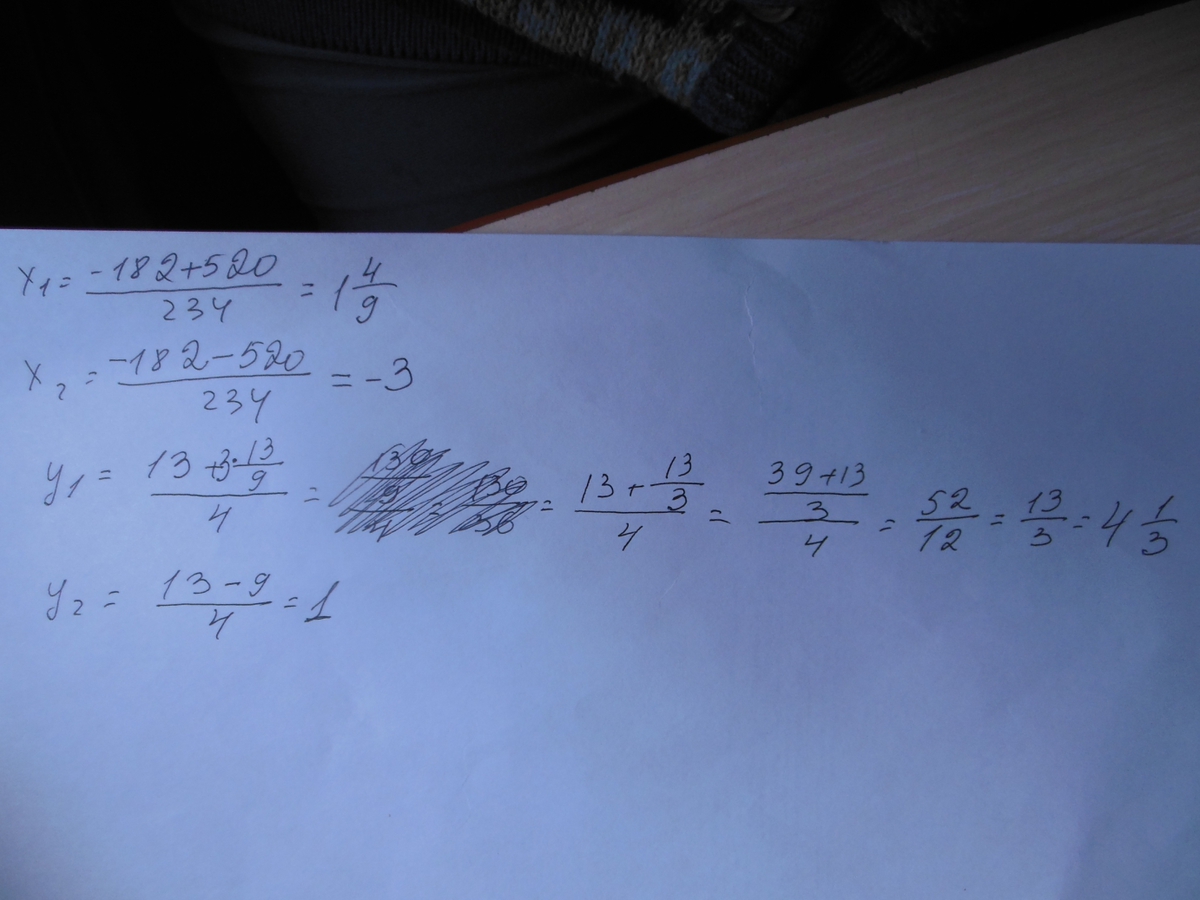 x₁ = (-182+520)/234 = 1 4/9
x₂ = (-182-520)/234 = -3
y₁ = (13+3·13/9)/4 = = (13+13/3)/4 = ((39+13)/3)/4 = 52/12 = 13/3 = 4 1/3
y₂ = (13-9)/4 = 1